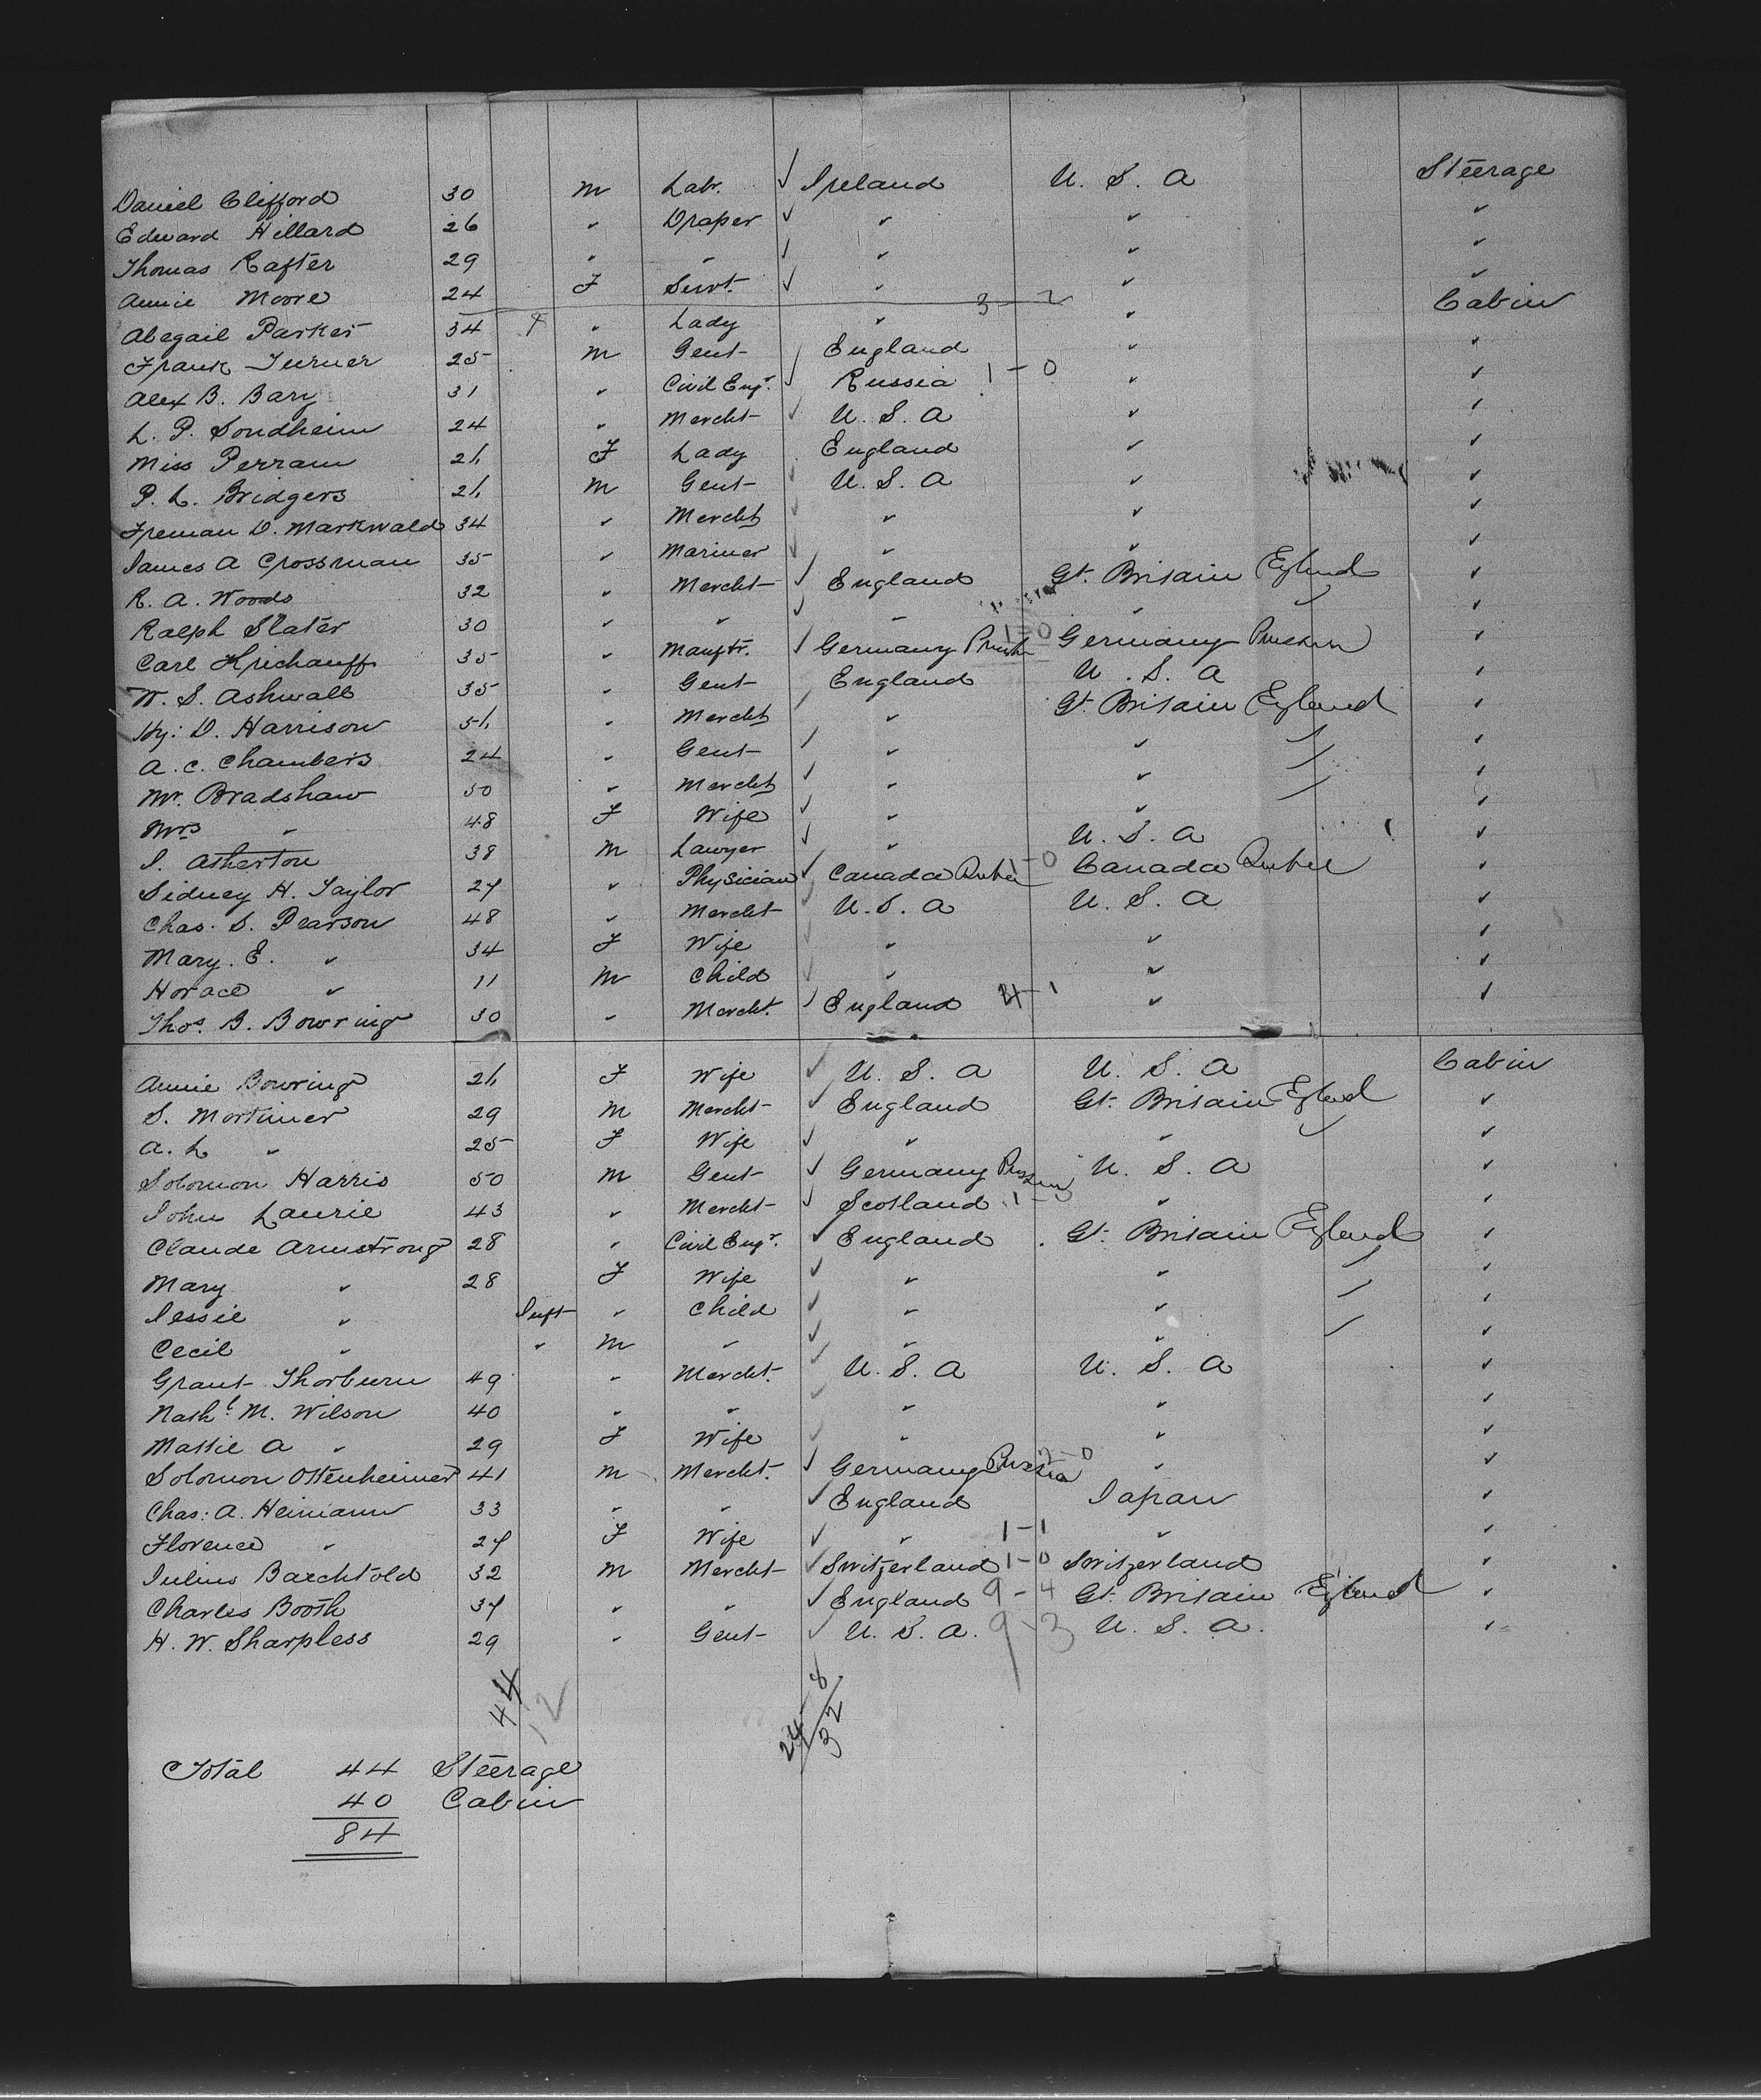 Daniel Clifford 30 M Labr. ✓ Ireland U. S. A Steerage
Edward Hillard 26 " Draper ✓ " " "
Thomas Rafter 29 " " ✓ " " "
Annie Moore 24 F Servt. ✓ " " "
3-2
Abegail Parker 34 " Lady " " Cabin
Frank Turner 25 M Gent ✓ England " "
Alex B. Bary 31 " Civil Engr. ✓ Russia 1-0 " "
L. P. Sondheim 24 " Mercht ✓ U. S. A " "
Miss Perram 21 F Lady England " "
P. L. Bridgers 21 M Gent ✓ U. S. A " "
Freman D. Markwald 34 " Mercht ✓ " " "
James A Crossman 35 " Mariner ✓ " " "
R. A. Woods 32 " Mercht ✓ England Gt. Britain England "
Ralph Slater 30 " " ✓ " " "
Carl Krichauff 35 " Manftr. ✓ Germany Prussia 1-0 Germany Prussia "
W. S. Ashwall 35 " Gent England U. S. A "
Hy: D. Harrison 51 " Mercht " Gt. Britain England "
A. C. Chambers 24 " Gent ✓ " " "
Mr. Bradshaw 50 " Mercht ✓ " " "
Mrs " 48 F Wife ✓ " " "
I. Asherton 38 M Lawyer ✓ " U. S. A "
Sidney H. Taylor 27 " Physician ✓ Canada Quebec 1-0 Canada Quebec "
Chas. S. Pearson 48 " Mercht ✓ U. S. A U. S. A "
Mary. E. " 34 F Wife ✓ " " "
Horace " 11 M Child ✓ " " "
Thos. B. Bowring 30 " Mercht. ✓ England 4-1 " "
Annie Bowring 21 F Wife ✓ U. S. A U. S. A Cabin
S. Mortimer 29 M Mercht ✓ England Gt. Britain England "
A. L " 25 F Wife ✓ " " "
Solomon Harris 50 M Gent ✓ Germany Prussia U. S. A "
John Laurie 43 " Mercht ✓ Scotland 1-0 " "
Claude Armstrong 28 " Civil Engr. ✓ England Gt. Britain England "
Mary " 28 F Wife ✓ " " "
Jessie " Inft " Child ✓ " " "
Cecil " " M " ✓ " " "
Grant Thorburn 49 " Mercht. ✓ U. S. A U. S. A "
Nathl. M. Wilson 40 " " ✓ " " "
Mattie A " 29 F Wife ✓ " " "
Solomon Ottenheimer 41 M Mercht. ✓ Germany Prussia 2-0 " "
Chas: A. Heimann 33 " " ✓ England Japan "
Florence " 27 F Wife ✓ " 1-1 " "
Julius Baechtold 32 M Mercht ✓ Switzerland 1-0 Switzerland "
Charles Booth 37 " " ✓ England 9-4 Gt. Britain England "
H. W. Sharpless 29 " Gent ✓ U. S. A. 9-3 U. S. A. "
44
12
24-8
32
Total 44 Steerage
40 Cabin
84